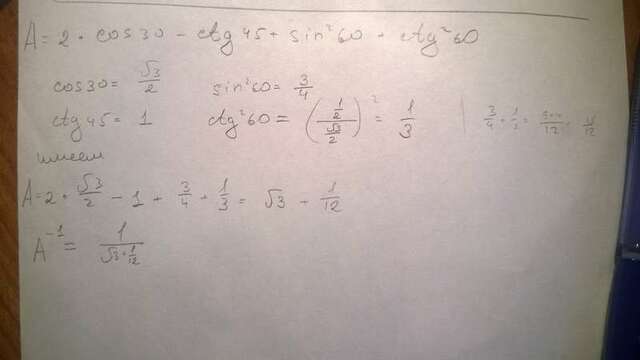 A = 2 · cos30 - ctg 45 + sin²60 + ctg²60
cos30 = √3/2 sin²60 = 3/4
ctg 45 = 1 ctg²60 = ((1/2)/(√3/2))² = 1/3
имеем
A = 2 · √3/2 - 1 + 3/4 + 1/3 = √3 + 1/12
A⁻¹ = 1/(√3 + 1/12)